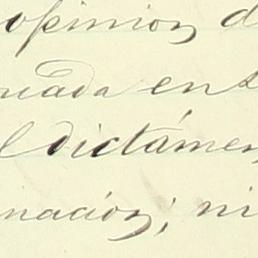 opinion d
uada en s
l dictámen
nación; ni